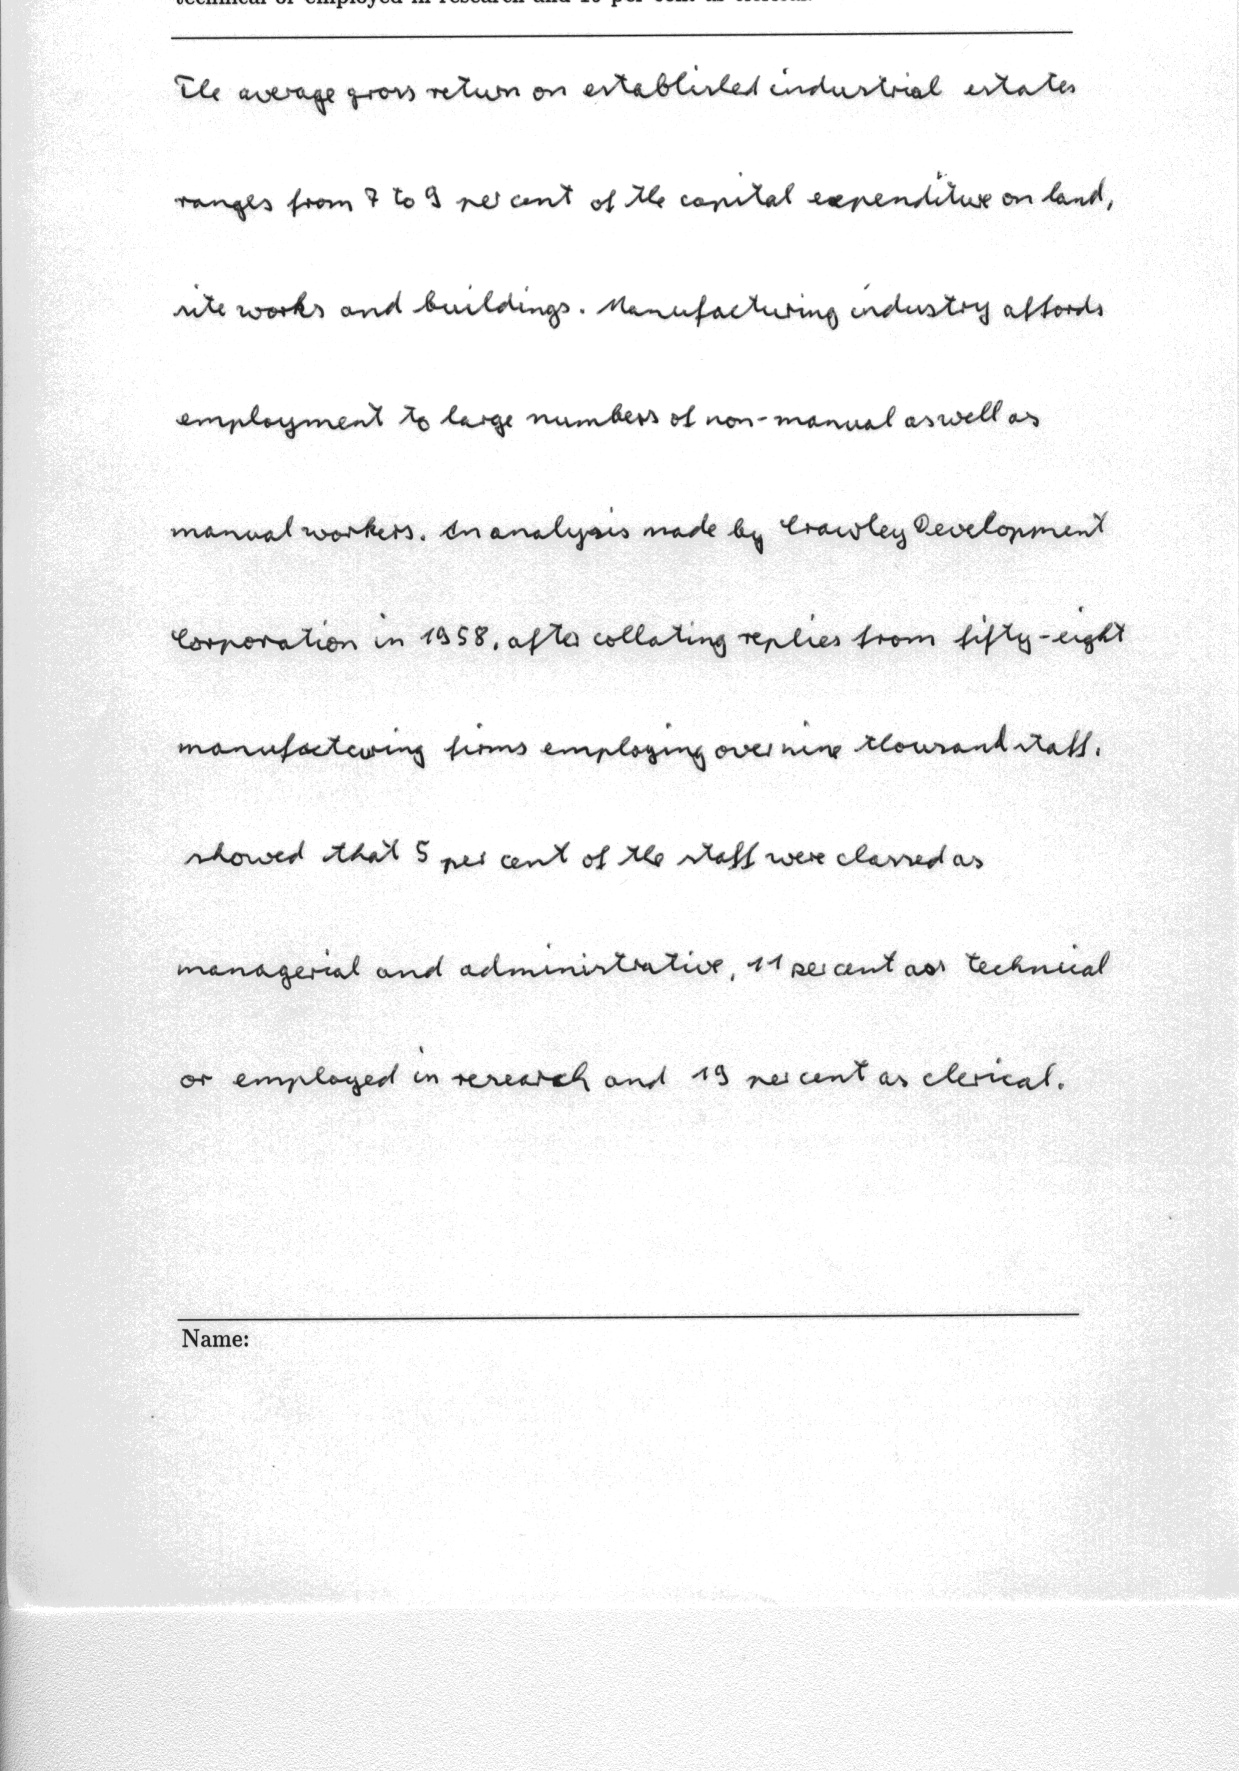 The average gross return on established industrial estates
ranges from 7 to 9 per cent of the capital expenditure on land,
site works and buildings. Manufacturing industry affords
employment to large numbers of non-manual as well as
manual workers. An analysis made by Crawley Development
Corporation in 1958, after collating replies from fifty-eight
manufacturing firms employing over nine thousand staff.
showed that 5 per cent of the staff were classed as
managerial and administrative, 11 per cent as technical
or employed in research and 19 per cent as clerical.
Name: